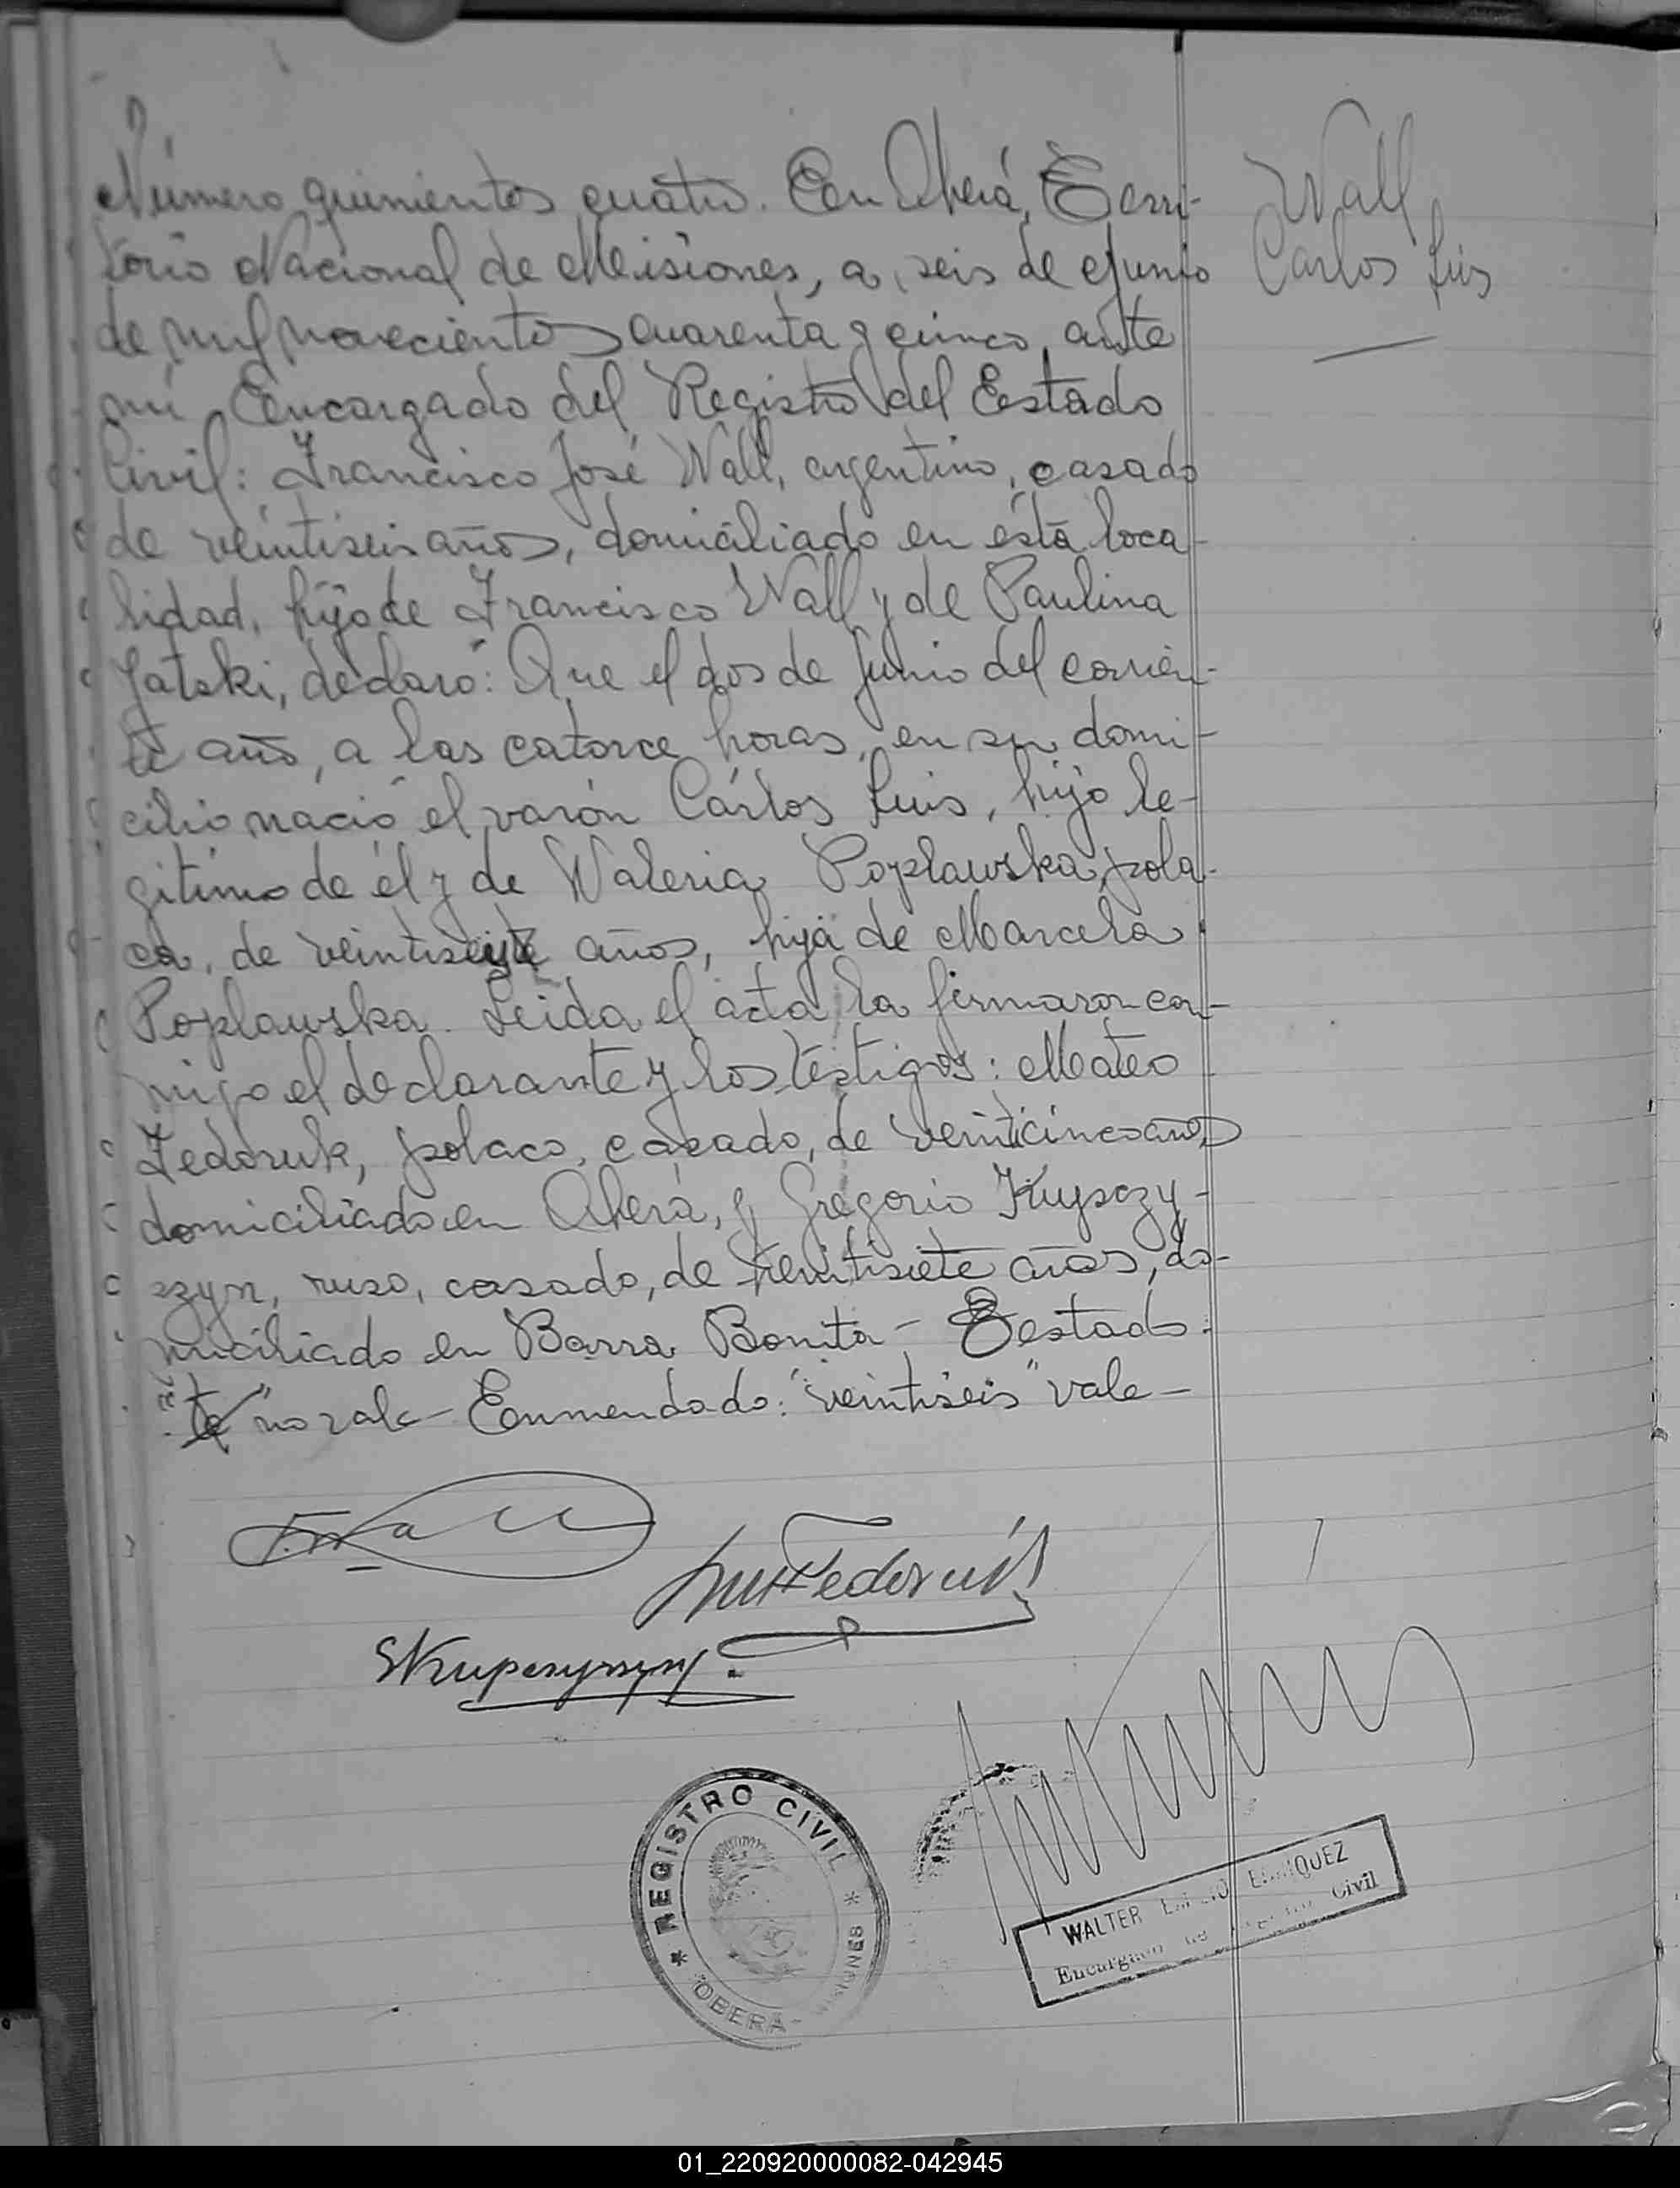 Número quinientos cuatro. En Oberá, Terri-
torio Nacional de Misiones, a seis de Junio
de mil novecientos cuarenta y cinco, ante
mi Encargado del Registro del Estado
Civil: Francisco José Wall, argentino, casado
de veintiseis años, domiciliado en esta loca-
lidad, hijo de Francisco Wall y de Paulina
Jatski, declaró: Que el dos de Junio del corrien-
te año, a las catorce horas, en su domi-
cilio nació el varón Cárlos Luis, hijo le-
gítimo de él y de Waleria Poplawska, pola-
ca, de veintiseis años, hija de Marcela
Poplawska. Leida el acta la firmaron con-
migo el declarante y los testigos: Mateo
Fedoruk, polaco, casado, de veinticinco años
domiciliado en Oberá, y Gregorio Kupczy-
szyn, ruso, casado, de veintisiete años, do-
miciliado en Barra Bonita - Testado:
"te" no vale - Enmendado: "veintiseis" vale -
Wall
Carlos Luis
F. Wall
Fedoruk
REGISTRO CIVIL
OBERÁ - MISIONES
WALTER ENRIQUEZ
Encargado del Registro Civil
01_220920000082-042945